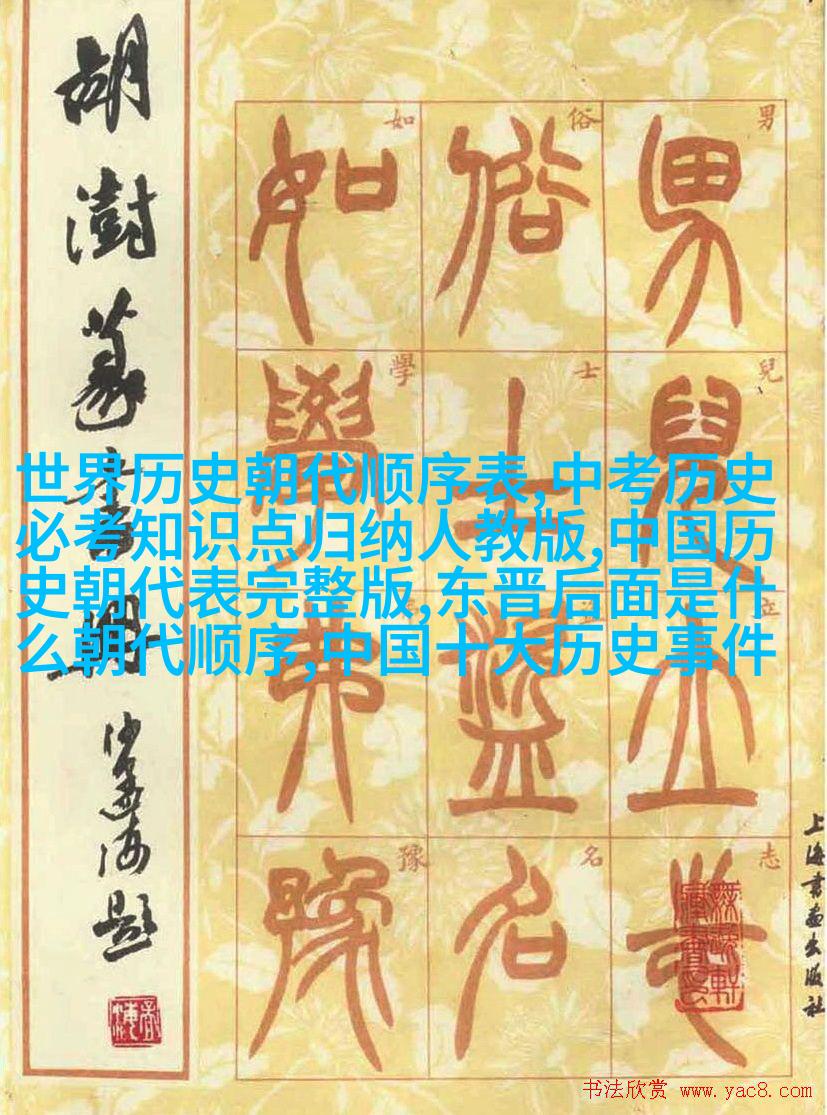 胡澍篆書册
沙孟海題
男兒立志
俗士盜名
如學弗豫
男兒立志
俗士盜名
如學弗豫
世界历史朝代顺序表,中考历史
必考知识点归纳人教版,中国历
史朝代表完整版,东晋后面是什
么朝代顺序,中国十大历史事件
上海書畫出版社
书法欣赏 www.yac8.com